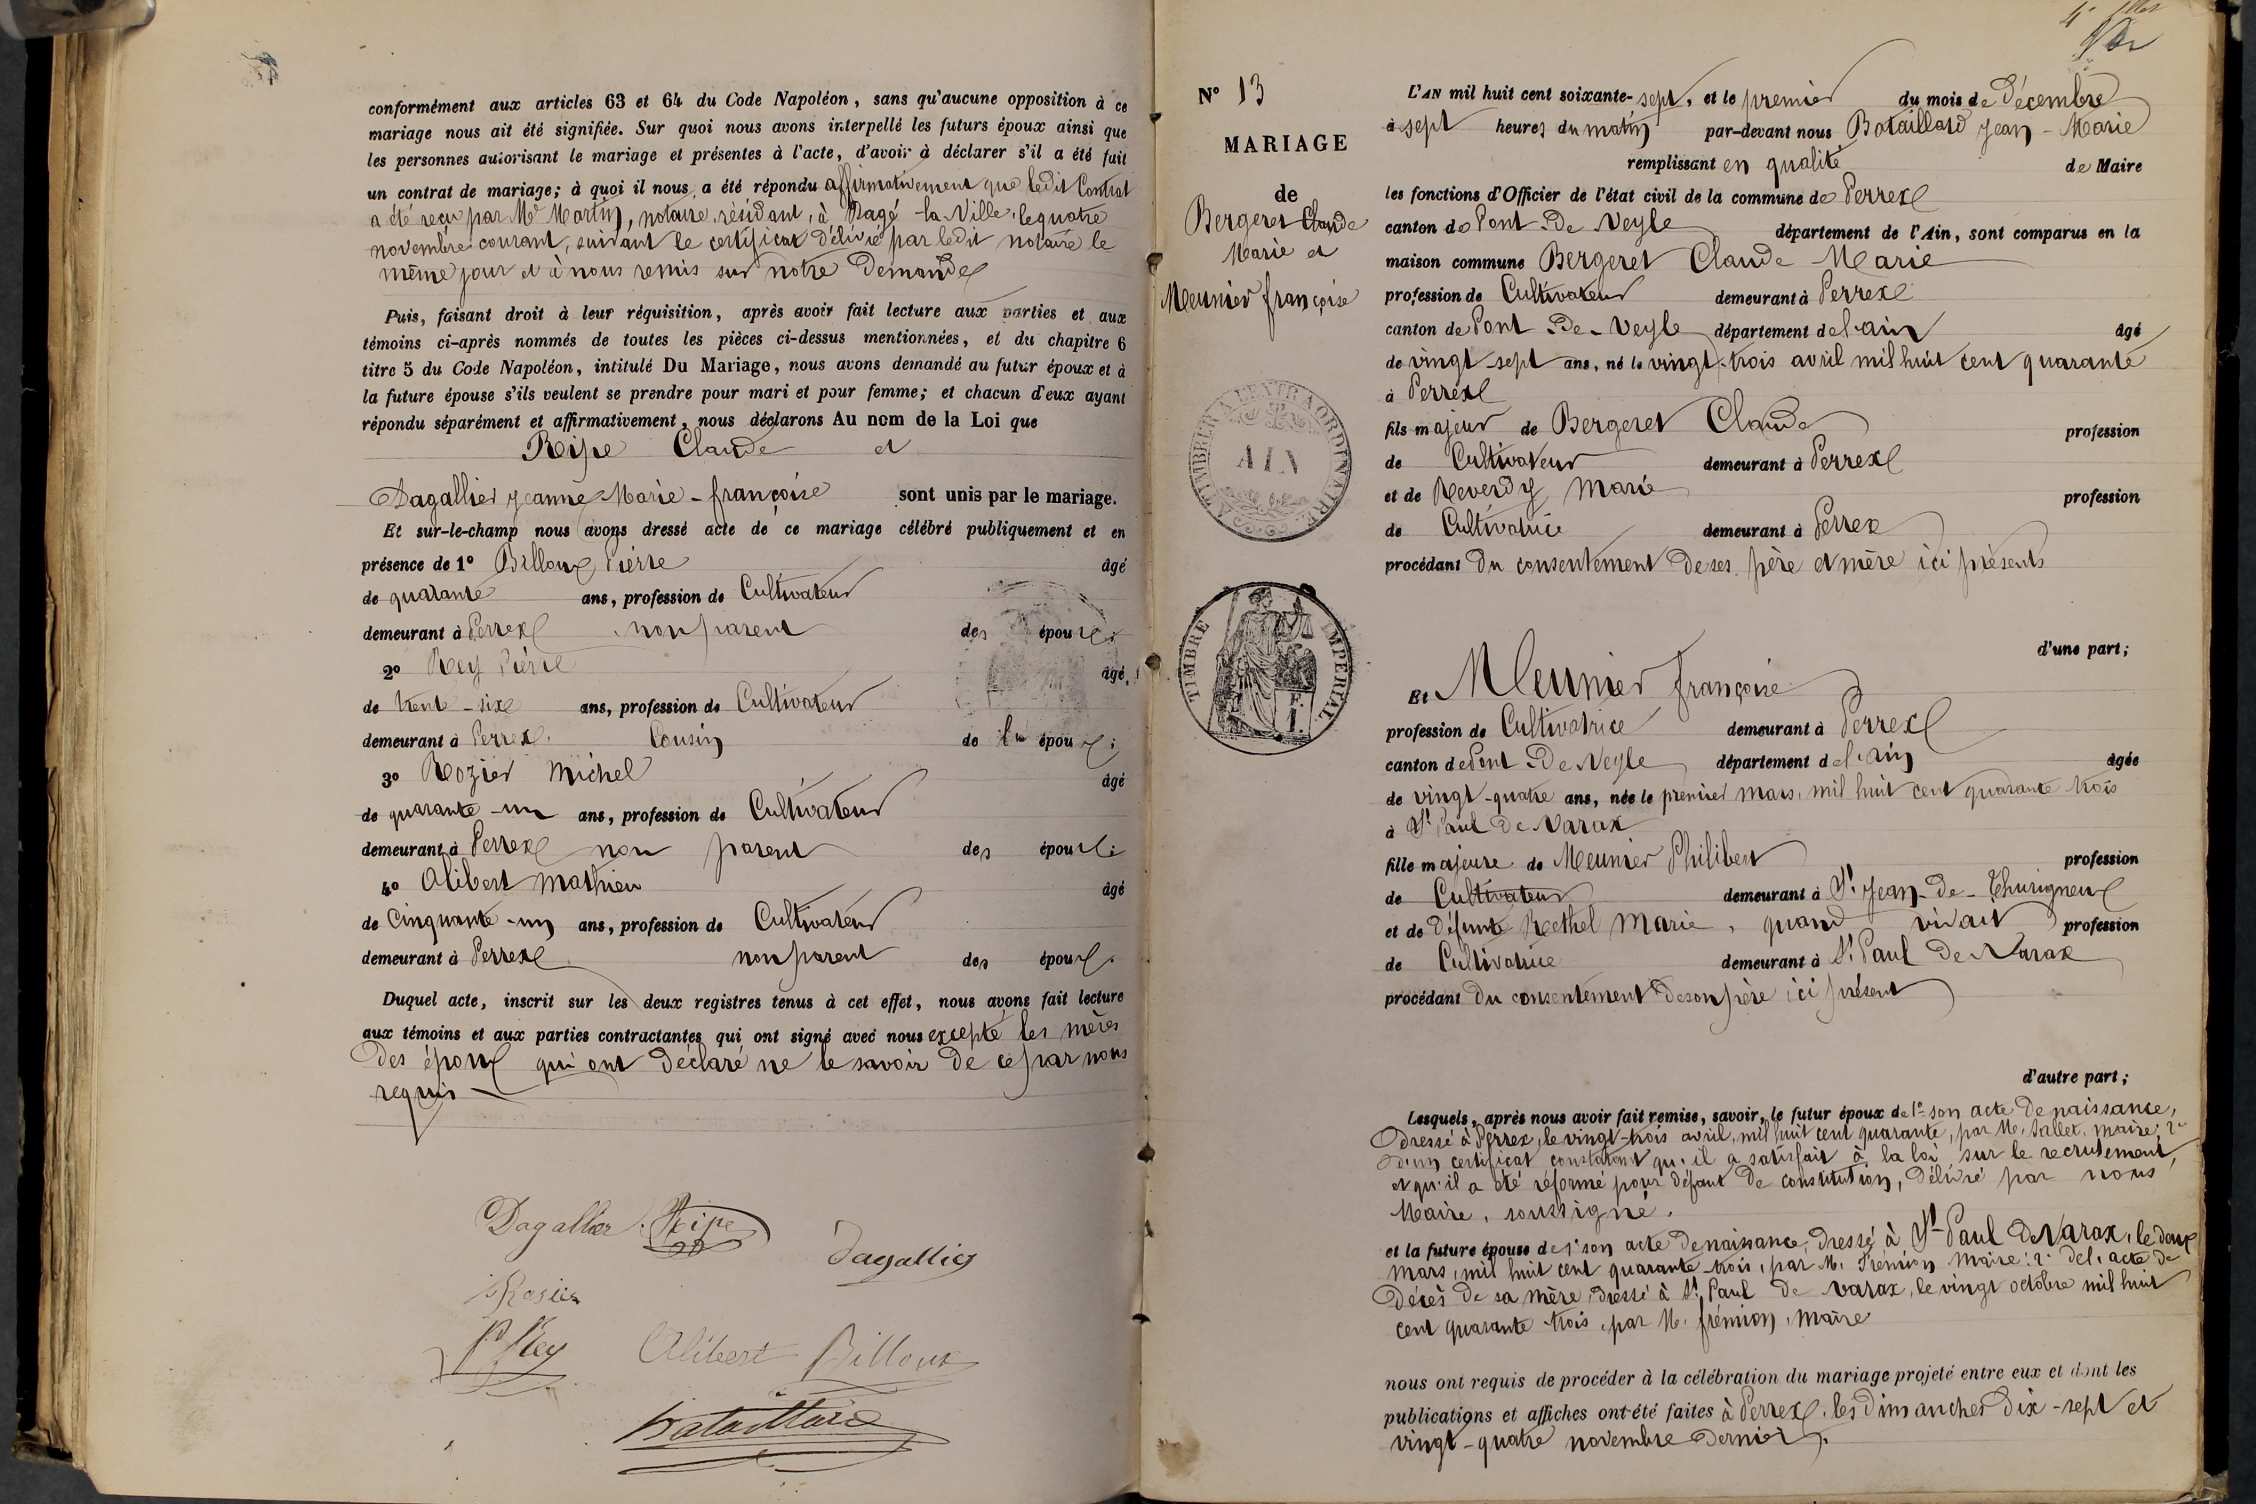 conformément aux articles 63 et 64 du Code Napoléon, sans qu'aucune opposition à ce
mariage nous ait été signifiée. Sur quoi nous avons interpellé les futurs époux ainsi que
les personnes autorisant le mariage et présentes à l'acte, d'avoir à déclarer s'il a été fait
un contrat de mariage; à quoi il nous a été répondu affirmativement que ledit Contrat
a été reçu par Me Martin, notaire, résidant, à Bagé-la-Ville, le quatre
novembre courant, suivant le certificat délivré par ledit notaire le
même jour et à nous remis sur notre demande
Puis, faisant droit à leur réquisition, après avoir fait lecture aux parties et aux
témoins ci-après nommés de toutes les pièces ci-dessus mentionnées, et du chapitre 6
titre 5 du Code Napoléon, intitulé Du Mariage, nous avons demandé au futur époux et à
la future épouse s'ils veulent se prendre pour mari et pour femme; et chacun d'eux ayant
répondu séparément et affirmativement, nous déclarons Au nom de la Loi que
Ripe Claude et
Dagallier Jeanne-Marie-françoise sont unis par le mariage.
Et sur-le-champ nous avons dressé acte de ce mariage célébré publiquement et en
présence de 1° Billoux Pierre âgé
de quarante ans, profession de Cultivateur
demeurant à Perrex non parent des époux;
2° Rey Pierre âgé
de trente-six ans, profession de Cultivateur
demeurant à Perrex. Cousin de l'un époux;
3° Rozier Michel âgé
de quarante-un ans, profession de Cultivateur
demeurant à Perrex non parent des époux;
4° Alibert Mathieu âgé
de Cinquante-un ans, profession de Cultivateur
demeurant à Perrex non parent des époux.
Duquel acte, inscrit sur les deux registres tenus à cet effet, nous avons fait lecture
aux témoins et aux parties contractantes qui ont signé avec nous excepté les mères
des époux qui ont déclaré ne le savoir de ce par nous
requis
Dagallier Ripe
Dagallier
Rosier
P. Rey Alibert Billoux
Bataillard
N° 13
MARIAGE
de
Bergeret Claude
Marie et
Meunier françoise
TIMBRE A L'EXTRAORDINAIRE
AIN
TIMBRE IMPERIAL
L'AN mil huit cent soixante-sept, et le premier du mois de Décembre
à sept heures du matin par-devant nous Bataillard Jean-Marie
remplissant en qualité de Maire
les fonctions d'Officier de l'état civil de la commune de Perrex
canton de Pont-de-Veyle département de l'Ain, sont comparus en la
maison commune Bergeret Claude Marie
profession de Cultivateur demeurant à Perrex
canton de Pont-de-Veyle département de l'ain âgé
de vingt-sept ans, né le vingt-trois avril mil huit cent quarante
à Perrex
fils majeur de Bergeret Claude profession
de Cultivateur demeurant à Perrex
et de Reverdy Marie profession
de Cultivatrice demeurant à Perrex
procédant du consentement de ses père et mère ici présents
d'une part;
Et Meunier françoise
profession de Cultivatrice demeurant à Perrex
canton de Pont-de-Veyle département de l'ain âgée
de vingt-quatre ans, née le premier mars, mil huit cent quarante trois
à St Paul de Varax
fille majeure de Meunier Philibert profession
de Cultivateur demeurant à St Jean-de-Thurigneux
et de défunte Rethel Marie, quand vivait profession
de Cultivatrice demeurant à St Paul de Varax
procédant du consentement de son père ici présent
d'autre part;
Lesquels, après nous avoir fait remise, savoir, le futur époux de 1° son acte de naissance,
dressé à Perrex, le vingt-trois avril, mil huit cent quarante, par M. Sallet, maire; 2°
d'un certificat constatant qu'il a satisfait à la loi sur le recrutement
et qu'il a été réformé pour défaut de constitution, délivré par nous
Maire, soussigné.
et la future épouse de 1° son acte de naissance, dressé à St-Paul de Varax, le deux
mars, mil huit cent quarante-trois, par M. Frémion maire; 2° de l'acte de
décès de sa mère, dressé à St Paul de Varax, le vingt octobre mil huit
cent quarante trois, par M. frémion, maire
nous ont requis de procéder à la célébration du mariage projeté entre eux et dont les
publications et affiches ont été faites à Perrex, les dimanches dix-sept et
vingt-quatre novembre dernier.